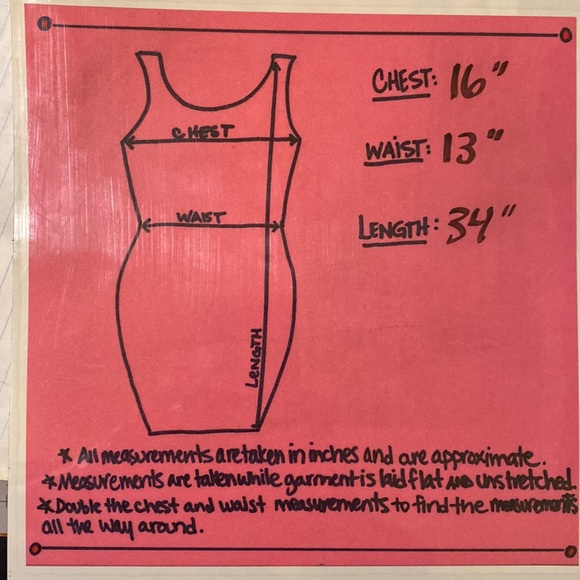 CHEST: 16"
WAIST: 13"
LENGTH: 34"
CHEST
WAIST
LENGTH
* All measurements are taken in inches and are approximate.
* Measurements are taken while garment is laid flat AND unstretched.
* Double the chest and waist measurements to find the measurements
all the way around.